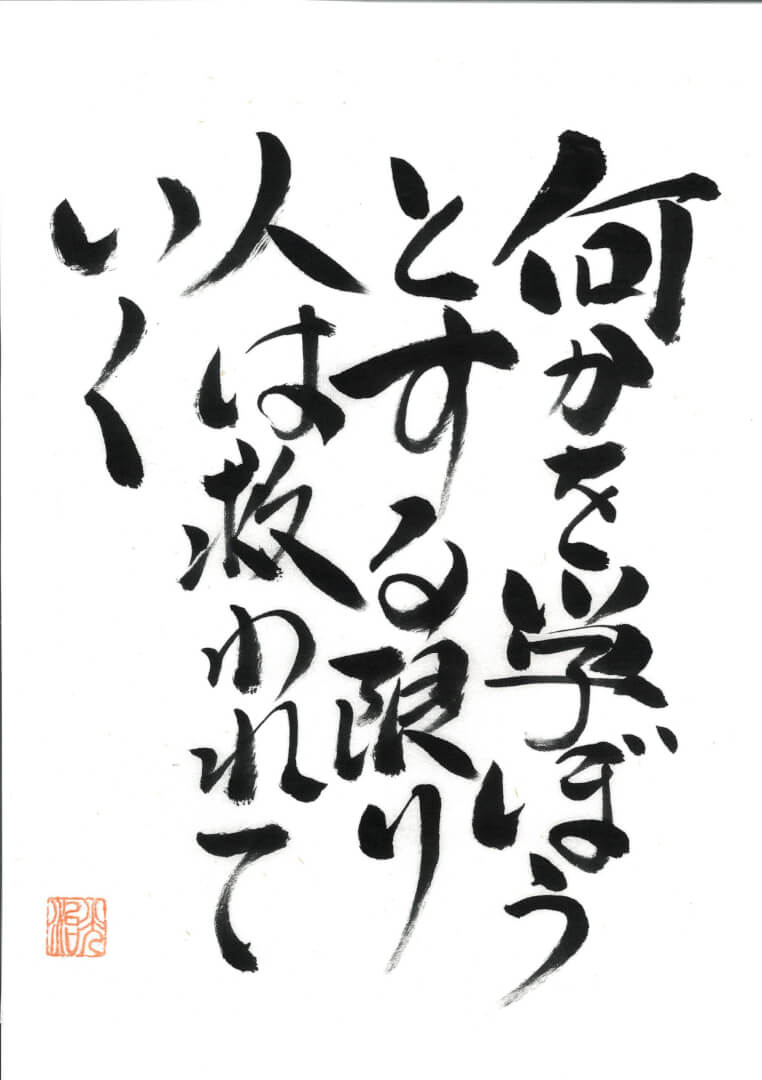 何かを学ぼう
とする限り
人は救われて
いく